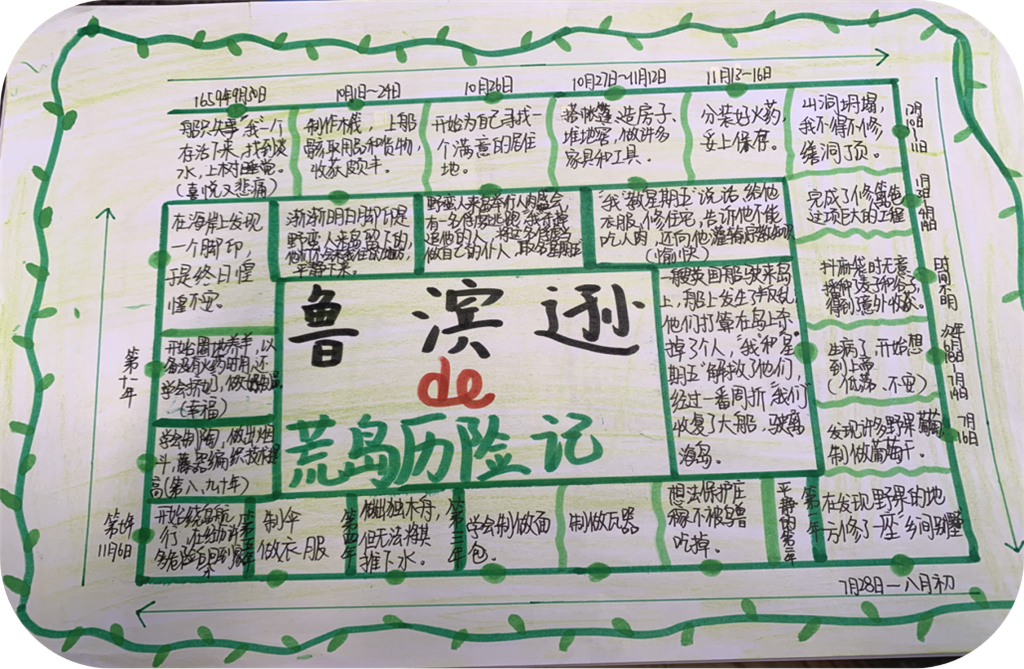 1659年9月30日
10月1日~24日
10月26日
10月27日~11月12日
11月13~16日
船只失事"我一个
存活下来,找到淡
水,上树睡觉。
(喜悦又悲痛)
制作木筏,上船
获取用品和货物,
收获颇丰。
开始为自己寻找一
个满意的居住
地。
搭帐篷、造房子、
堆地窖,做许多
家具和工具。
分装好火药,
妥上保存。
山洞坍塌,
我不得不修
缮洞顶。
完成了修
这项巨大的工程
抖麻袋时无意
得到意外收获。
时间不明
生病了,开始想
到上帝
(低落、不安)
次年
6月18日—7月14日
发现许多野果葡萄
制做葡萄干。
7月16日
在发现野果的地
方修了一座乡间别墅
7月28日—八月初
平静的第二年
想法保护庄
稼不被鸟兽
吃掉。
制做瓦器
学会制做面
包。
做出独木舟,
但无法将其
推下水。
第四年
制伞
做衣服
开始绕岛航
行,在经历许
多危险后回到
第七年
11月6日
学会制陶,做出烟
斗,藤器编织技术提
高(第八、九十年)
开始圈地养羊,以
备没有火药时用,还
学会挤奶,做奶制品
(幸福)
第十一年
在海岸上发现
一个脚印,
于是终日惶
惶不安。
渐渐明白脚印是
野蛮人来岛留下的,
平静下来。
野蛮人来岛举行人肉盛会,
做自己的仆人,取名星期五
"我"教"星期五"说话、给他
衣服、修住宅,告诉他不能
吃人肉,还向他灌输宗教知识
(愉快)
一艘英国船驶来岛
上,船上发生了叛乱,
他们打算在岛上杀
掉了个人,"我"和"星
期五"解放了他们,
经过一番周折"我们"
收复了大船,驶离
海岛。
鲁滨逊
de
荒岛历险记